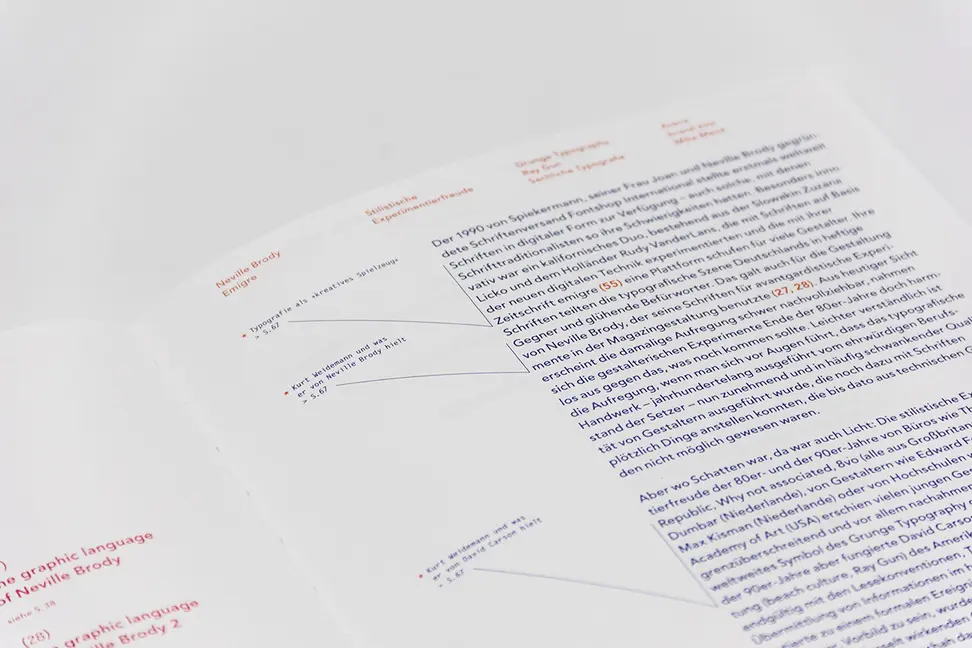 Neville Brody
Emigre
Stilistische
Experimentierfreude
Grunge Typography
Ray Gun
Sachliche Typografie
Typografie als »kreatives Spielzeug«
> S.67
Kurt Weidemann und was
er von Neville Brody hielt
> S.67
Kurt Weidemann und was
er von David Carson hielt
> S.67
Der 1990 von Spiekermann, seiner Frau Joan und Neville Brody gegrün-
dete Schriftenversand Fontshop International stellte erstmals weltweit
Schriften in digitaler Form zur Verfügung – auch solche, mit denen
Schrifttraditionalisten so ihre Schwierigkeiten hatten. Besonders inno
vativ war ein kalifornisches Duo, bestehend aus der Slowakin Zuzana
Licko und dem Holländer Rudy VanderLans, die mit Schriften auf Basis
der neuen digitalen Technik experimentierten und die mit ihrer
Zeitschrift emigre (55) eine Platform schufen für viele Gestalter. Ihre
Schriften teilten die typografische Szene Deutschlands in heftige
Gegner und glühende Befürworter. Das galt auch für die Gestaltung
von Neville Brody, der seine Schriften für avantgardistische Experi-
mente in der Magazingestaltung benutzte (27, 28). Aus heutiger Sicht
erscheint die damalige Aufregung schwer nachvollziehbar, nahmen
sich die gestalterischen Experimente Ende der 80er-Jahre doch harm-
los aus gegen das, was noch kommen sollte. Leichter verständlich ist
die Aufregung, wenn man sich vor Augen führt, dass das typografische
Handwerk – jahrhundertelang ausgeführt vom ehrwürdigen Berufs-
stand der Setzer – nun zunehmend und in häufig schwankender Qua
tät von Gestaltern ausgeführt wurde, die noch dazu mit Schriften
plötzlich Dinge anstellen konnten, die bis dato aus technischen
den nicht möglich gewesen waren.
Aber wo Schatten war, da war auch Licht: Die stilistische
tierfreude der 80er- und der 90er-Jahre von Büros wie
Republic, Why not associated, 8vo (alle aus Großbritan
Dumbar (Niederlande), von Gestaltern wie Edward
Max Kisman (Niederlande) oder von Hochschulen
Academy of Art (USA) erschien vielen jungen
grenzüberschreitend und vor allem nachahmen
weltweites Symbol des Grunge Typography
der 90er-Jahre aber fungierte David Carson
tung (beach culture, Ray Gun) des
endgültig mit den Lesekonventionen,
Übermittlung von Informationen im
zu einem formalen
Vorbild zu sein, wurde
wirkenden
(27)
the graphic language
of Neville Brody
siehe S.38
(28)
graphic language
Brody 2